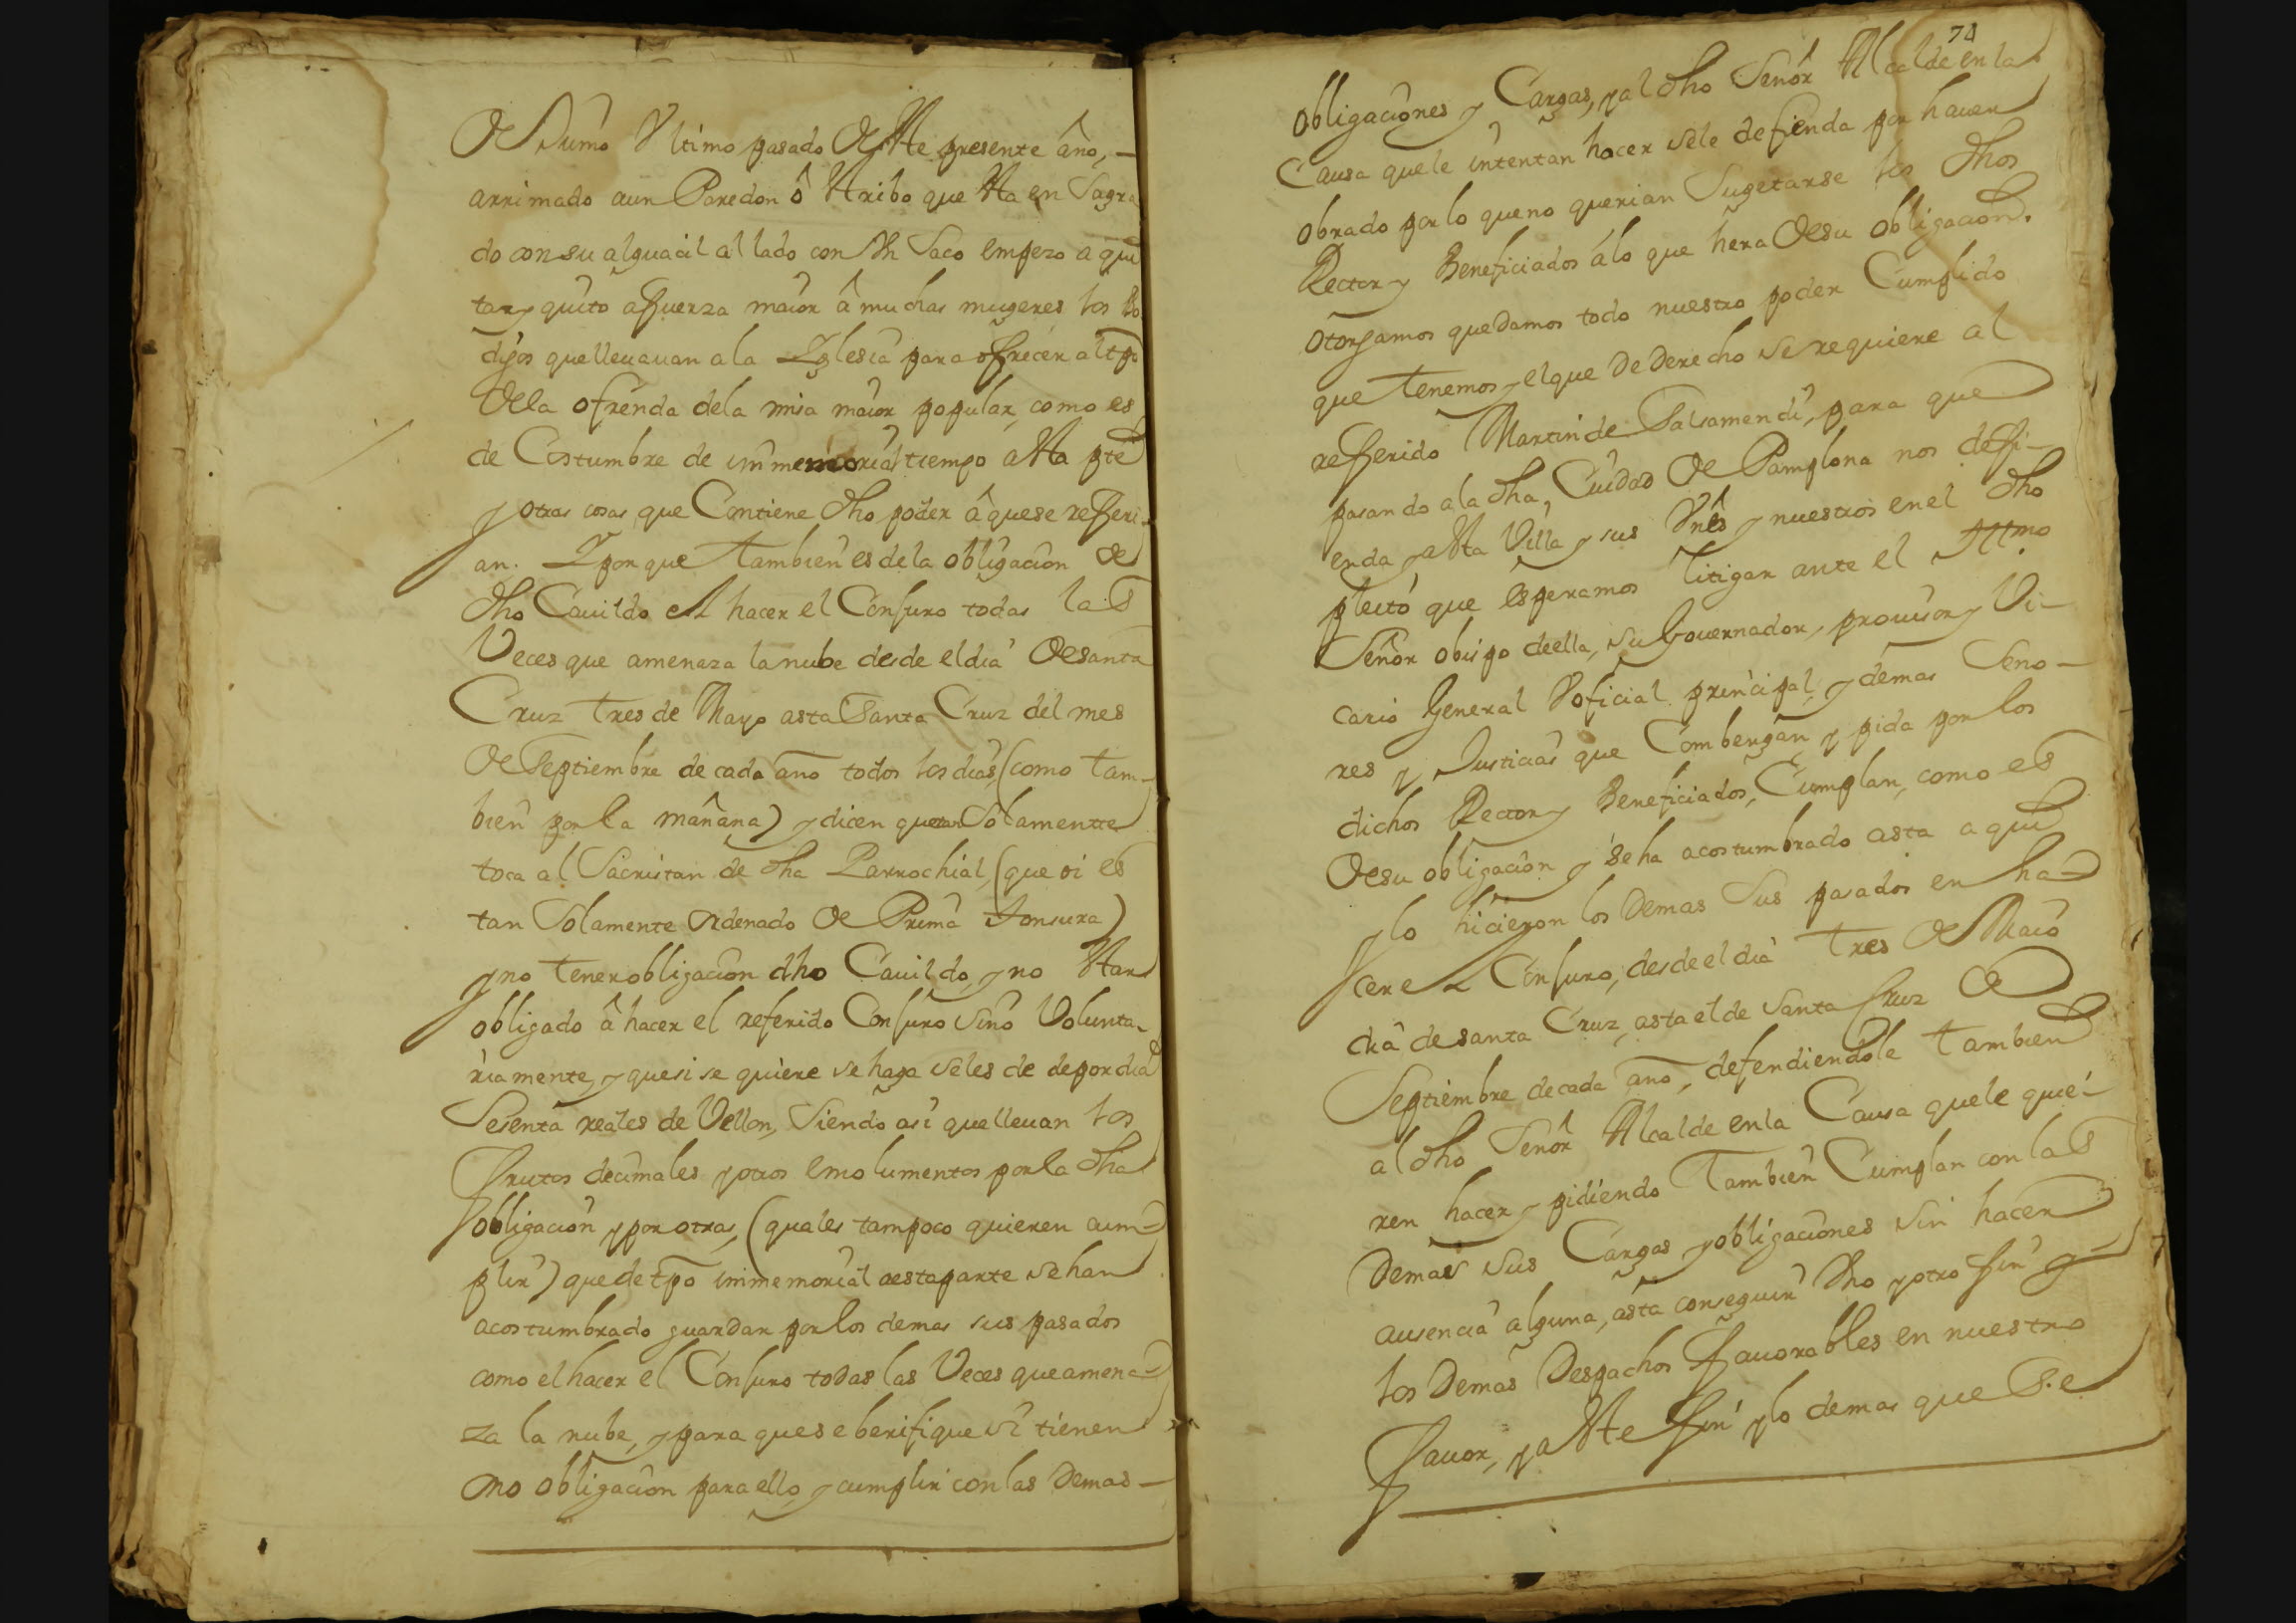 de Junio Ultimo pasado de este presente año,
arrimado aun Paredon ô estribo que esta en Sagra
do con su alguacil al lado con un Saco empezo a qui
tar y quito a fuerza maior â muchas mugeres los Bo
digos que lleuauan a la Yglesia para ofrecer al tpo
de la ofrenda de la misa maior popular, como es
de Costumbre de immemorial tiempo a esta pte
y otras cosas que Contiene dho poder â que se referi-
an. Y porque tambien es de la obligacion de
dho Cauildo el hacer el Conjuro todas las
Veces que amenaza la nube desde el dia de santa
Cruz tres de Mayo asta Santa Cruz del mes
de Septiembre de cada año todos los dias, (como tam-
bien por la mañana) y dicen que tan Solamente
toca al Sacristan de dha Parrochial, (que si es
tan Solamente ordenado de Prima tonsura)
y no tener obligacion dho Cauildo, y no estar
obligado â hacer el referido Conjuro sino Volunta-
riamente, y que si se quiere se haga se les de de por dia
Sesenta reales de Vellon, Siendo asi que lleuan los
frutos decimales y otros emolumentos por la dha
obligacion y por otras, (quales tampoco quieren cum-
plir) que de tpo immemorial a esta parte se han
acostumbrado guardar por los demas sus pasados
como el hacer el Conjuro todas las Veces que amena-
za la nube, y para que se berifique si tienen
o no obligacion para ello, y cumplir con las Demas-
78
obligaciones y Cargas, y al dho Señor Alcalde en la
Causa que le intentan hacer se le defienda por hauer
obrado por lo que no querian Sugetarse los dhos
Rector y Beneficiados â lo que hera de su obligacion.
otorgamos que damos todo nuestro poder Cumplido
que tenemos y el que De Derecho se requiere al
referido Martin de Salsamendi, para que
pasando a la dha, Ciudad de Pamplona nos defi-
enda y a esta Villa y sus Vnos y nuestros en el dho
pleito que esperamos Litigar ante el Illmo
Señor obispo de ella, su Gouernador, prouisor y Vi-
cario General Y oficial principal, y demas Seno-
res y Justicias que Combengan y pida por los
dichos Rector y Beneficiados, Cumplan, como es
de su obligacion y se ha acostumbrado asta aqui
y lo hicieron los Demas Sus pasados en ha-
cer el Conjuro, desde el dia tres de Maio
dia de santa Cruz, asta el de Santa Cruz de
Septiembre de cada año, defendiendole tambien
al dho Señor Alcalde en la Causa que le quie-
ren hacer y pidiendo Tambien Cumplan con las
Demas sus Cargas y obligaciones sin hacer
ausencia alguna, asta conseguir dho y otro fin y
los Demas Despachos fauorables en nuestro
fauor, y a este fin y lo demas que Se